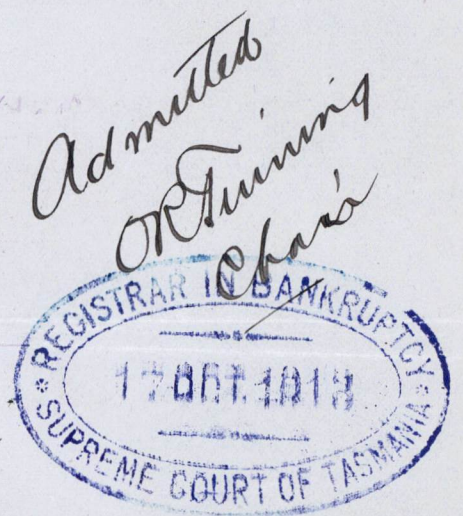 Admitted
Chas
REGISTRAR IN BANKRUPTCY
17 OCT. 1913
SUPREME COURT OF TASMANIA